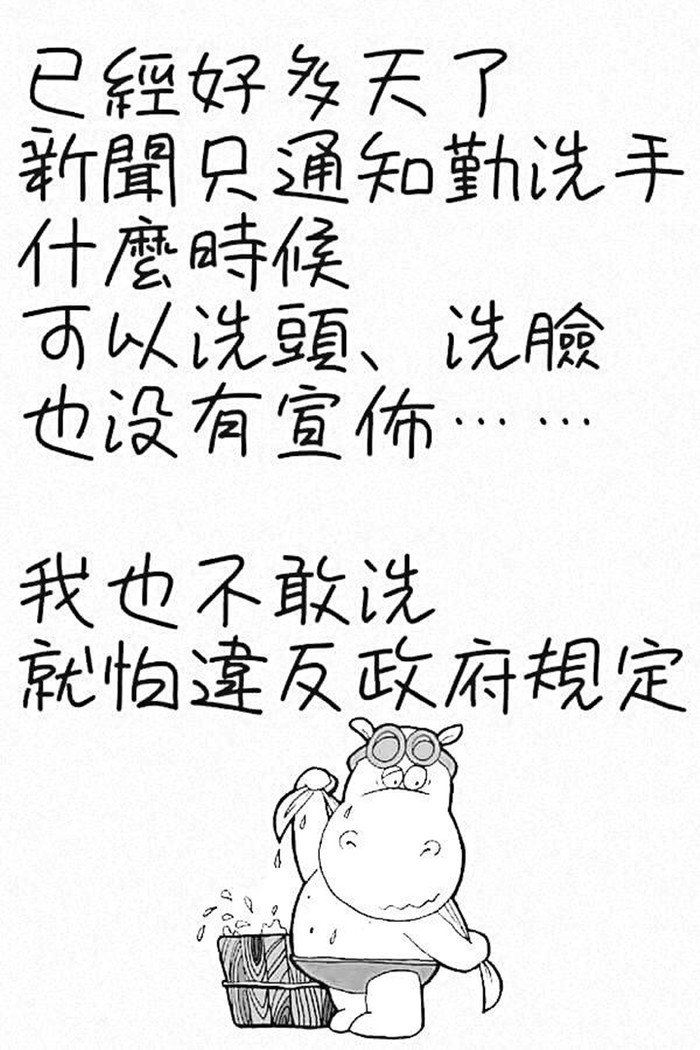 已經好多天了
新聞只通知勤洗手
什麼時候
可以洗頭、洗臉
也没有宣佈⋯⋯
我也不敢洗
就怕違反政府規定